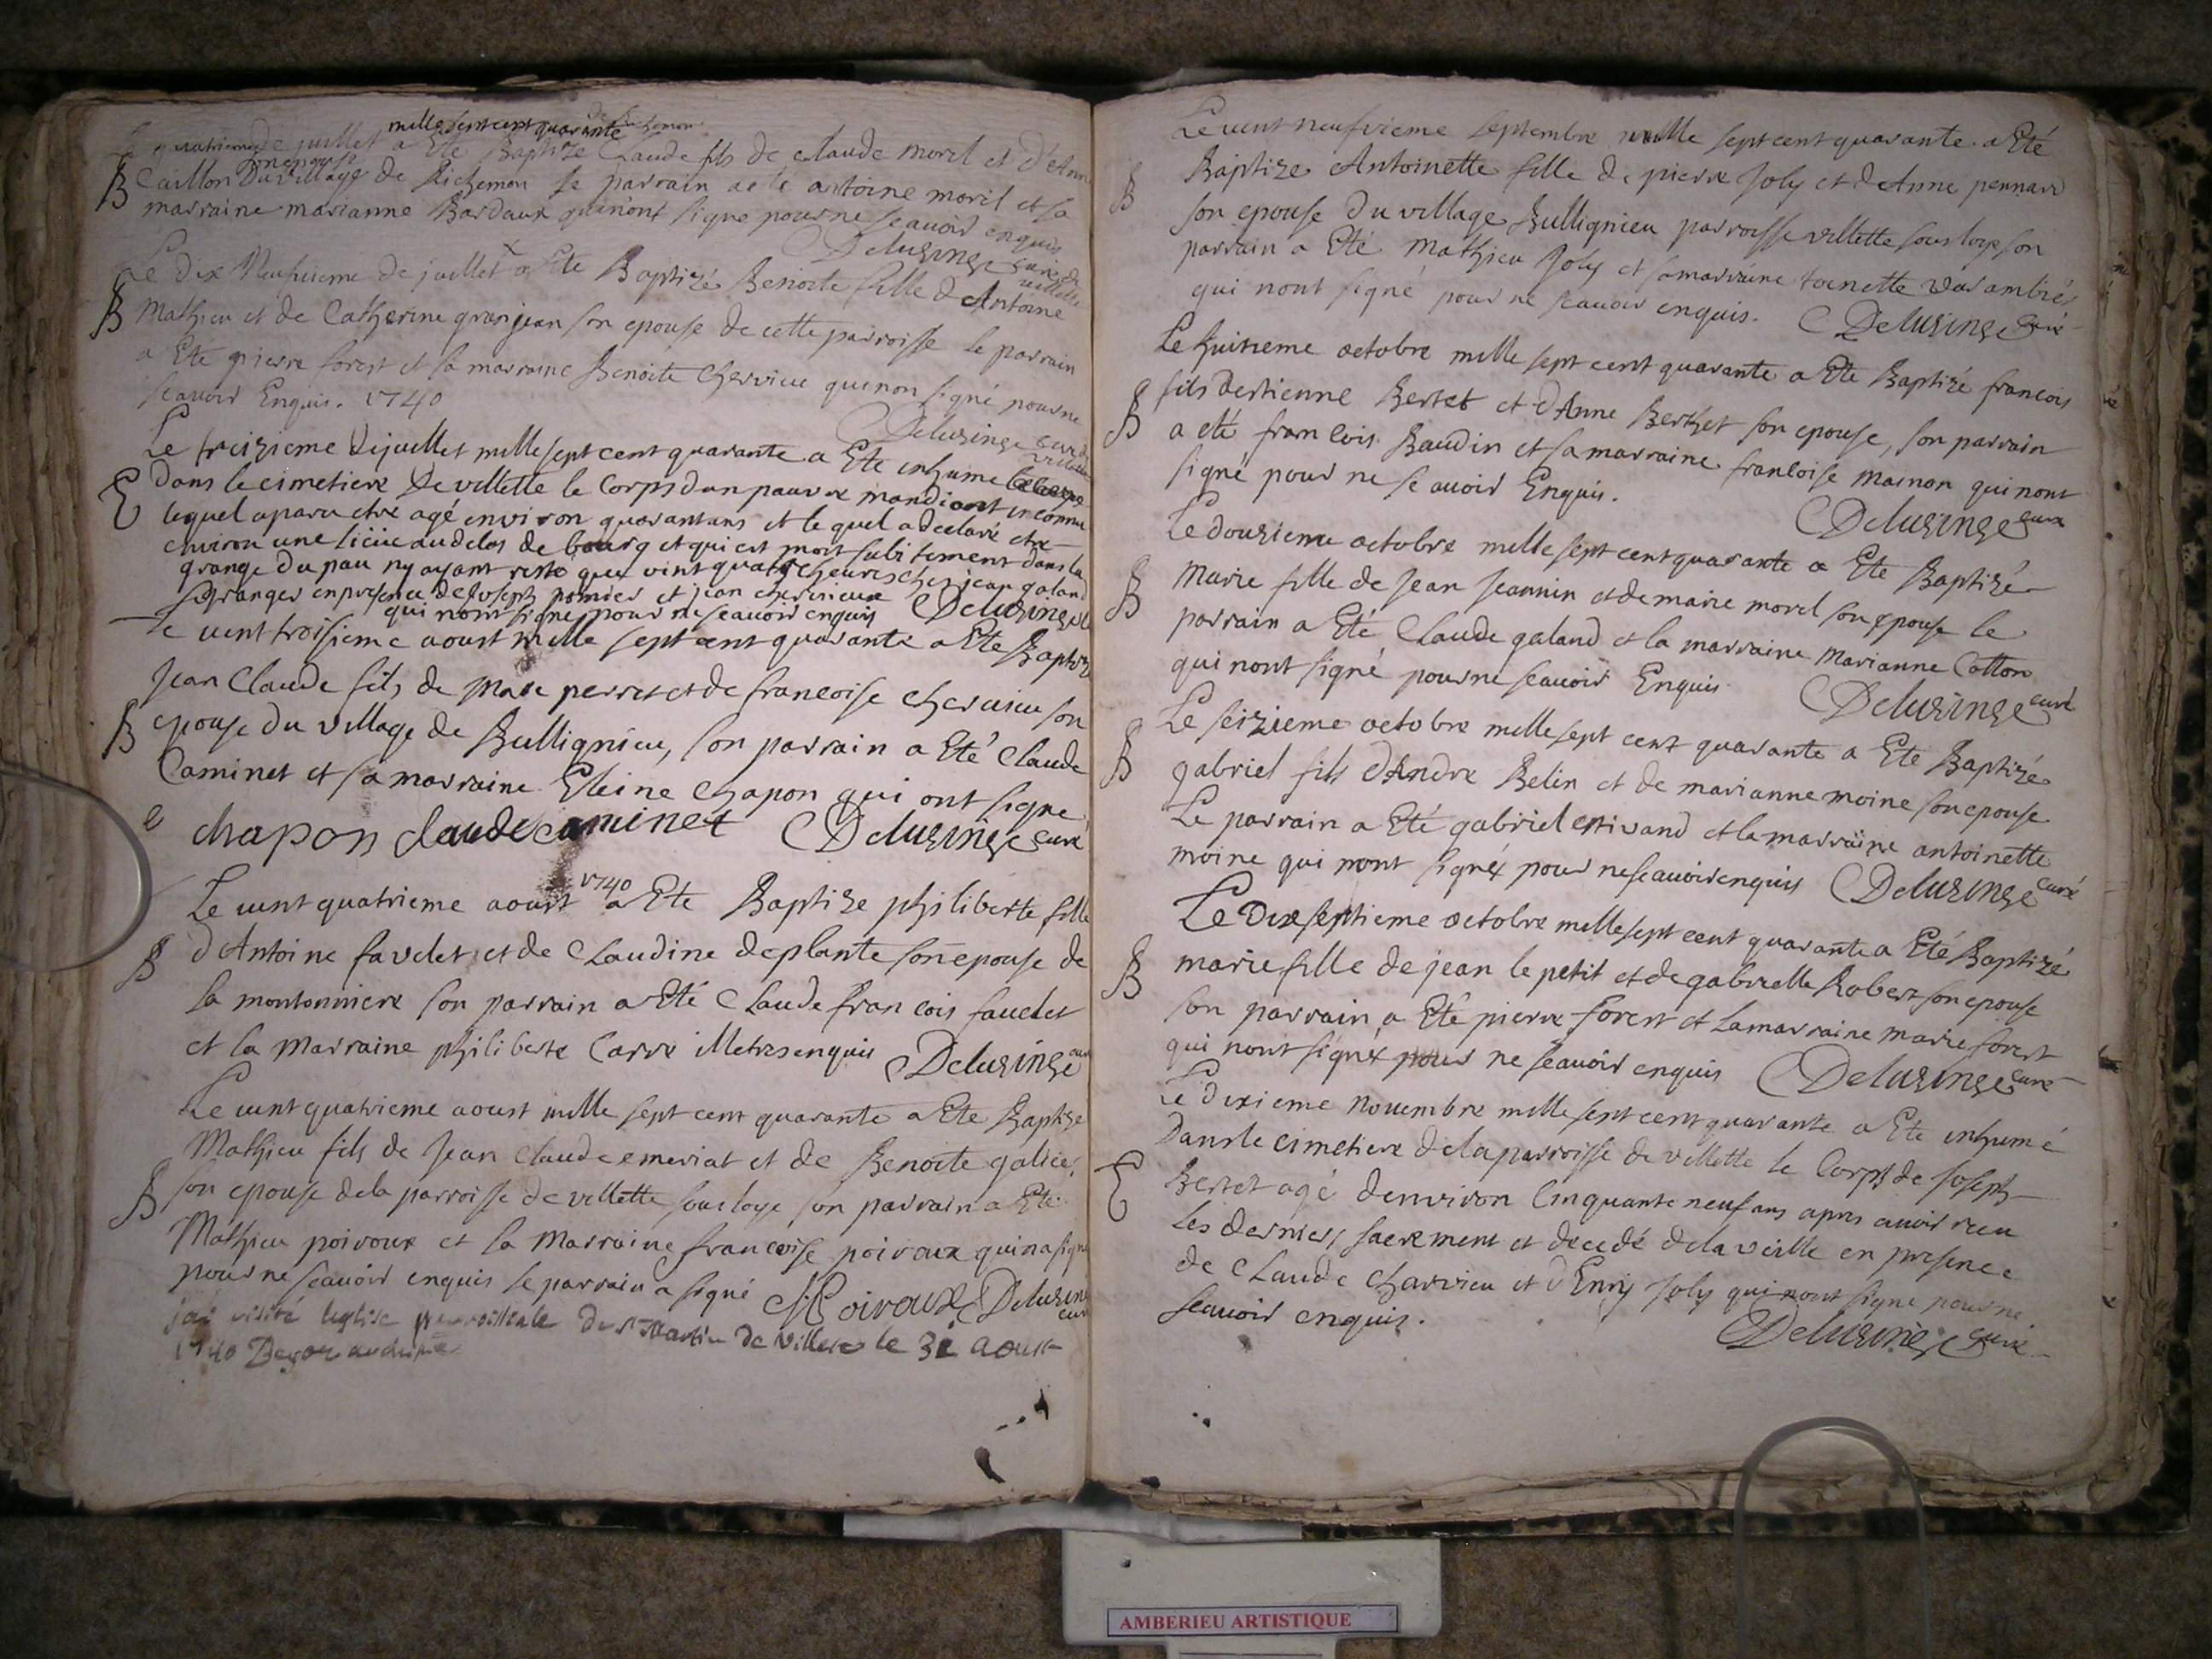 mille sept cent quarante
quatrieme de juillet a Ete Baptize Claude fils de claude morel et d'Anne
son epouse
B Caillon Du village de Richemon le parrain a ete antoine morel et sa
marraine marianne Bardaux qui n'ont signe pour ne scavoir enquis
Delusinge curé de villette
Le dix Neufvieme de juillet a Ete Baptizé Benoite fille d Antoine
B Mathieu et de Catherine granjean son epouse de cette parroisse le parrain
a Eté pierre forest et sa marraine Benoite Chervieu qui non signé pour ne
scavoir Enquis. 1740
Delusinge curé de villette
Le treizieme de juillet mille sept cent quarante a Ete inhume
E Dans le cimetiere De villette le Corps dun pauvre mandiant inconnu
lequel a paru etre agé environ quarantans et le quel a declaré etre
environ une lieüe audelas de bourg et qui est mort subitement dans la
grange du pau ny ayant resté que vint quatre heures chez jean galand
granger en presence de Joseph pomier et jean chervieux
qui nont signé pour ne scavoir enquis Delusinge
Le vent troisieme aoust mille sept cent quarante a Ete Baptize
Jean Claude fils de Marc perret et de francoise chervieu son
B epouse du village de Bullignieu, son parrain a Eté Claude
Caminet et sa marraine Eleine Chapon qui ont signe
e chapon claude caminet Delusinge curé
Le vent quatrieme aoust 1740 a Ete Baptize philiberte fille
B d'Antoine favelet et de Claudine deplante son epouse de
la montonniere son parrain a Eté Claude francois fauelet
et la Marraine philiberte Carre illetres enquis Delusinge curé
Le vent quatrieme aoust mille sept cent quarante a Ete Baptize
Mathieu fils de Jean Claude emeriat et de Benoite galies
B son epouse de la parroisse de villette sous loye son parrain a Ete
Mathieu poiroux et la Marraine francoise poiroux qui na signe
pour ne scavoir enquis le parrain a signé MPoiroux Delusinge curé
jai visité leglise parroissiale de st martin de villete le 31 aoust
1740
Le vent neufvieme septembre mille sept cent quarante a Eté
B Baptize Antoinette fille de pierre Joly et d Anne pennard
son epouse du village Bullignieu parroisse villette sous loye son
parrain a Eté Mathieu Joly et sa marraine toinette varambié
qui nont signé pour ne scavoir enquis. Delusinge curé
Le huitieme octobre mille sept cent quarante a Ete Baptizé francois
B fils destienne Bertet et d Anne Berthet son epouse, son parrain
a eté francois Baudin et sa marraine francoise mainon qui nont
signé pour ne scavoir Enquis.
Delusinge curé
Le douzieme octobre mille sept cent quarante a Ete Baptizé
B Marie fille de Jean Jeannin et de marie morel son epouse le
parrain a Eté Claude galand et la marraine Marianne Cotton
qui nont signé pour ne scavoir Enquis Delusinge curé
Le seizieme octobre mille sept cent quarante a Ete Baptizé
B gabriel fils d Andre Belin et de marianne moine son epouse
Le parrain a Eté gabriel estivand et la marraine antoinette
moine qui nont signéz pour ne scavoir enquis Delusinge curé
Le Dix septieme octobre mille sept cent quarante a Eté Baptizé
B marie fille de jean le petit et de gabrielle Robert son epouse
son parrain a Eté pierre forest et la marraine marie forest
qui nont signéz pour ne scavoir enquis Delusinge curé
Le dixieme Novembre mille sept cent quarante a Ete inhumé
Dans le cimetiere de la parroisse de villette le Corps de Joseph
E Bertet agé denviron Cinquante neuf ans apres avoir receu
les derniers sacrement et decedé de la veille en presence
de Claude Charvieu et d Enry Joly qui nont signé pour ne
scavoir enquis.
Delusinge curé
AMBERIEU ARTISTIQUE